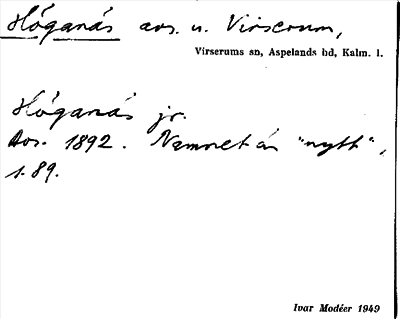 Höganäs avs. u. Virserum,
Virserums sn, Aspelands hd, Kalm. l.
Höganäs jr.
Avs. 1892. Namnet är "nytt",
s. 89.
Ivar Modéer 1949